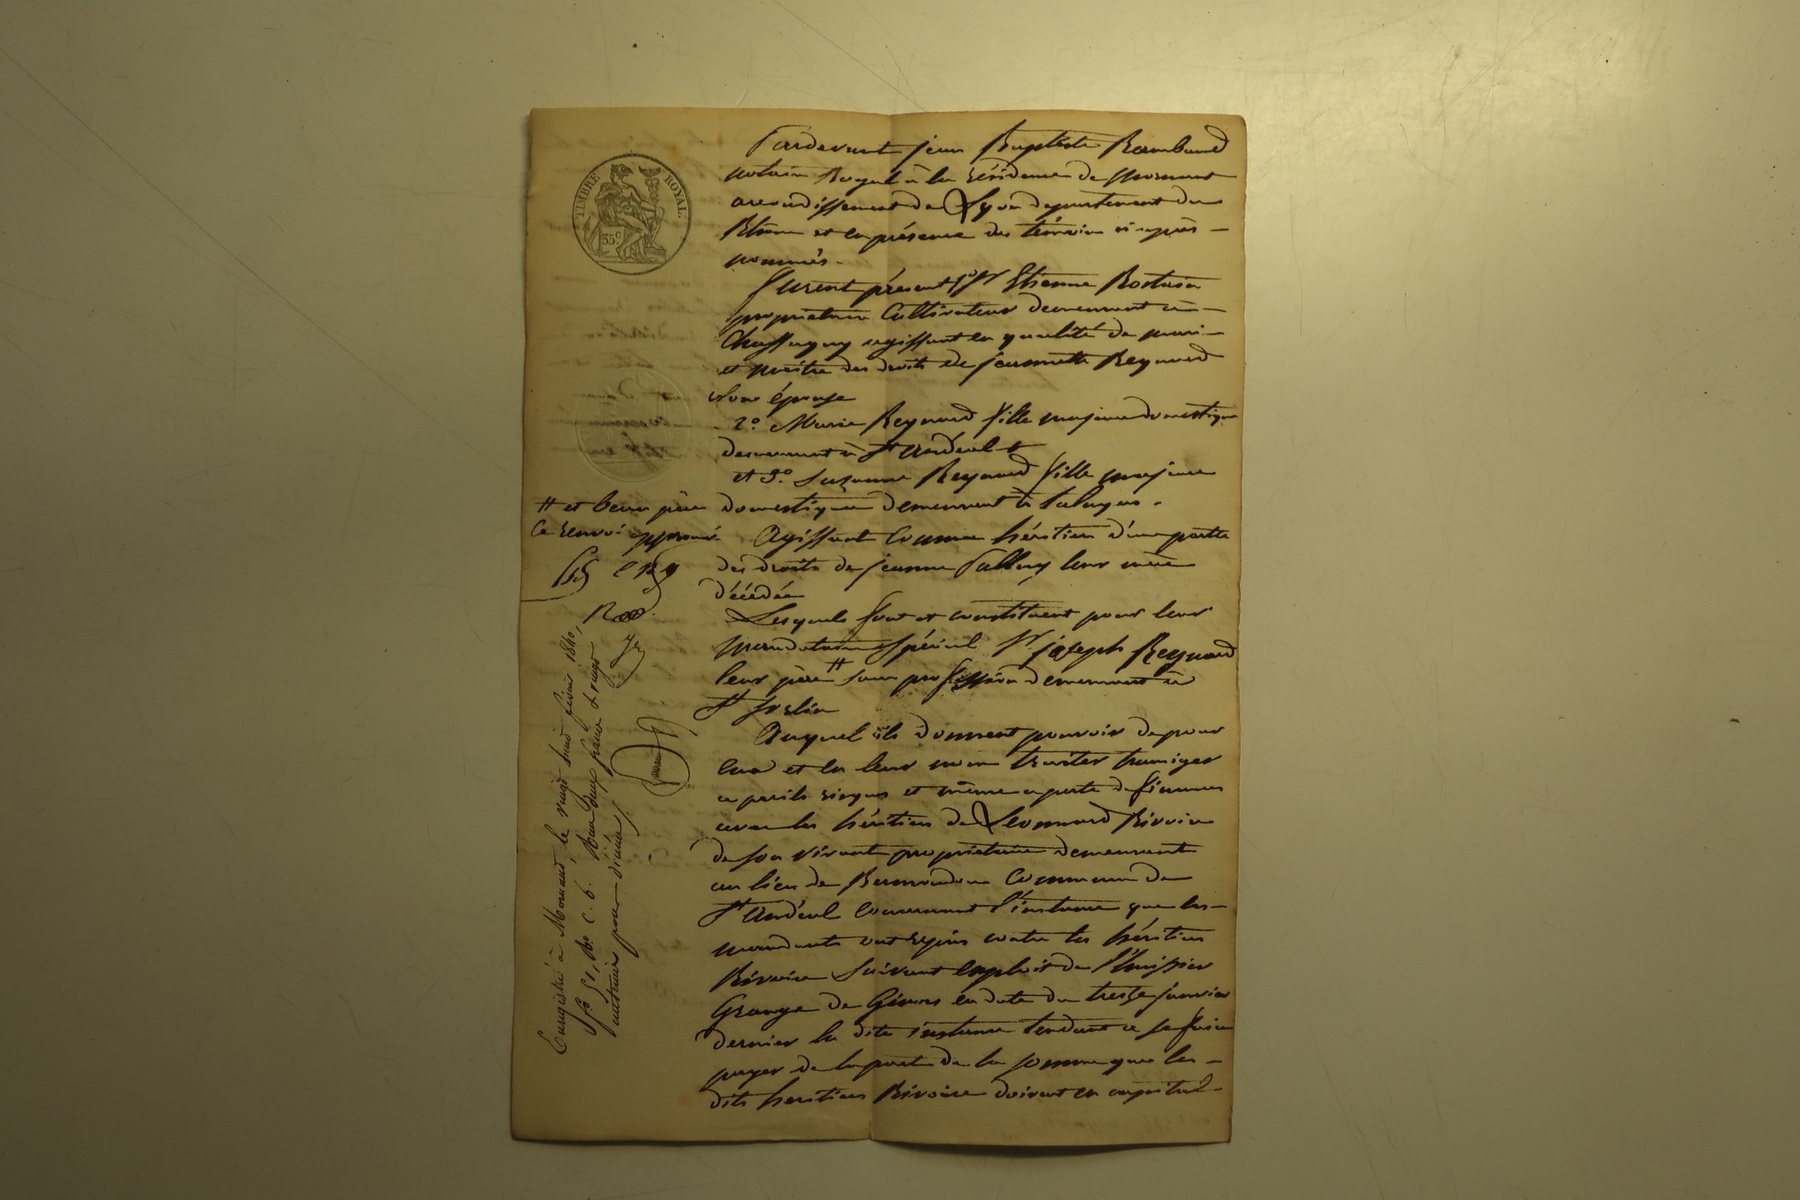 TIMBRE ROYAL.
35 c
Pardevant jean Baptiste Rambaud
notaire Royal à la résidence de Mornant
arrondissement de Lyon departement du
Rhône et en présence des témoins ci après
nommés.
furent présent 1° Sr Etienne
propriétaire Cultivateur demeurant à
Chassagny agissant en qualité de mari
et maître des droits de jeannette Reynard
son épouse
2° Marie Reynard fille majeure domestique
demeurant à St andéol
et 3° Suzanne Reynard fille majeure
domestique demeurant à taluyers.
Agissant comme héritiers d'une partie
des droits de jeanne leur mère
décédée
Lesquels font et constituent pour leur
mandataire spécial Sr joseph Reynard
leur père # sans profession demeurant à
St
Auquel ils donnent pouvoir de pour
eux et en leur nom traiter transiger
à perils risques et même à perte de finances
avec les héritiers de Leonnard Rivoire
de son vivant propriétaire demeurant
au lieu de Commune de
St Andéol concernant l'instance que les
mandants ont contre les héritiers
Rivoire suivant exploit de l'huissier
Grange de Givors en date du treize janvier
dernier la dite instance tendant à se faire
payer de la part de la somme que les
dits heritiers Rivoire doivent en capital
# et beau père
Ce renvoi approuvé
Enregistré à Mornant, le vingt huit février 1840,
fo 51, Ro. C. 6. Reçu deux francs & vingt
centimes pour décime.